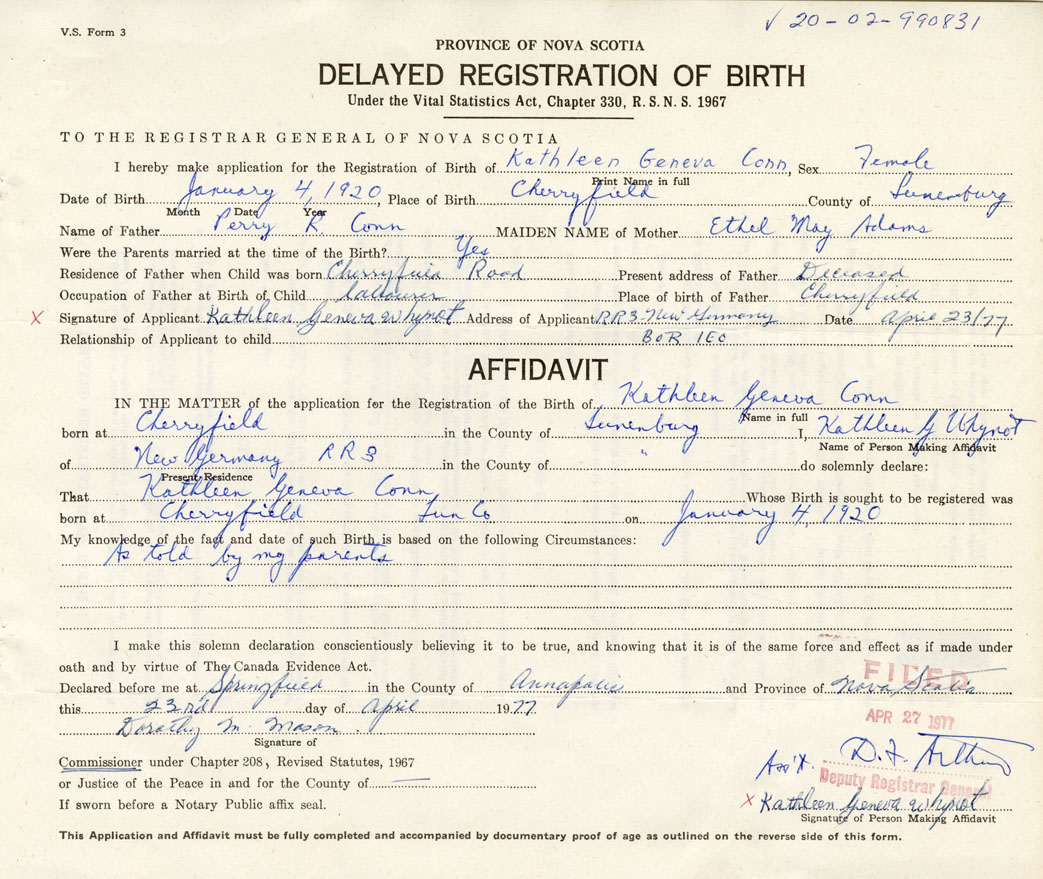 V.S. Form 3
✓ 20-02-990831
PROVINCE OF NOVA SCOTIA
DELAYED REGISTRATION OF BIRTH
Under the Vital Statistics Act, Chapter 330, R. S. N. S. 1967
TO THE REGISTRAR GENERAL OF NOVA SCOTIA
I hereby make application for the Registration of Birth of Kathleen Geneva Conn, Sex Female
Print Name in full
Date of Birth January 4, 1920, Place of Birth Cherryfield County of Lunenburg
Month Date Year
Name of Father Perry R. Conn MAIDEN NAME of Mother Ethel May Adams
Were the Parents married at the time of the Birth? Yes
Residence of Father when Child was born Cherryfield Road Present address of Father Deceased
Occupation of Father at Birth of Child labourer Place of birth of Father Cherryfield
X Signature of Applicant Kathleen Geneva Whynot Address of Applicant RR3 New Germany Date April 23/77
Relationship of Applicant to child BOR 1EO
AFFIDAVIT
IN THE MATTER of the application for the Registration of the Birth of Kathleen Geneva Conn
Name in full
born at Cherryfield in the County of Lunenburg I, Kathleen G Whynot
Name of Person Making Affidavit
of New Germany RR3 in the County of " do solemnly declare:
Present Residence
That Kathleen Geneva Conn Whose Birth is sought to be registered was
born at Cherryfield Lun Co on January 4, 1920
My knowledge of the fact and date of such Birth is based on the following Circumstances:
As told by my parents
I make this solemn declaration conscientiously believing it to be true, and knowing that it is of the same force and effect as if made under
oath and by virtue of The Canada Evidence Act.
FILED
Declared before me at Springfield in the County of Annapolis and Province of Nova Scotia
this 23rd day of April 1977
APR 27 1977
Dorothy M. Mason.
Signature of
Commissioner under Chapter 208, Revised Statutes, 1967
Ass't. D.F. Arthur
or Justice of the Peace in and for the County of
Deputy Registrar General
X Kathleen Geneva Whynot
If sworn before a Notary Public affix seal.
Signature of Person Making Affidavit
This Application and Affidavit must be fully completed and accompanied by documentary proof of age as outlined on the reverse side of this form.